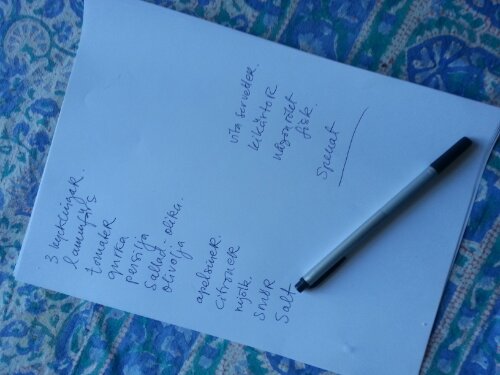 3 kycklingar.
lammfärs
tomater
gurka
persilja
sallad. olika.
olivolja
apelsiner.
citroner
mjölk.
smör
salt
vita servetter.
kikärtor
någon rökt
fisk.
spenat